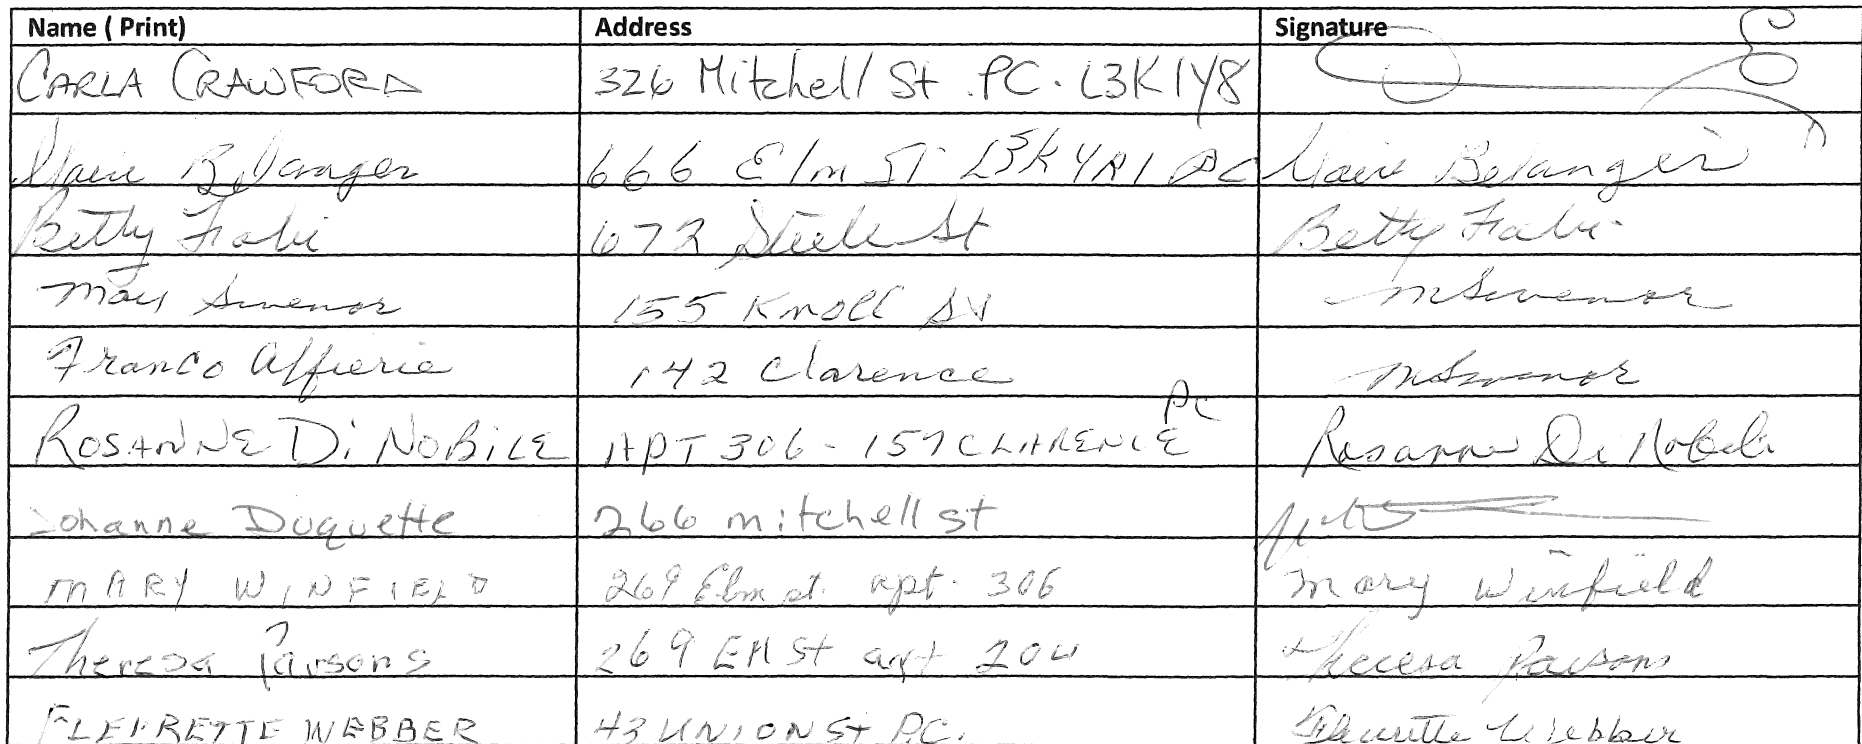 Name ( Print) Address Signature
CARLA CRAWFORD 326 Mitchell St. PC. L3K1Y8
Belanger 666 Elm ST L3K4A1 PC Belanger
Betty Fabi 672 Steele St Betty Fabi
155 Knoll St
Franco Affierie 142 Clarence
ROSANNE Di NOBILE APT 306 - 157 CLARENCE PC Rosanne Di Nobile
Johanne Duquette 266 mitchell st
MARY WINFIELD 269 Elm st. apt. 306 Mary Winfield
Theresa Parsons 269 Elm St apt 204 Theresa Parsons
FLEURETTE WEBBER 43 UNION St P.C. Fleurette Webber